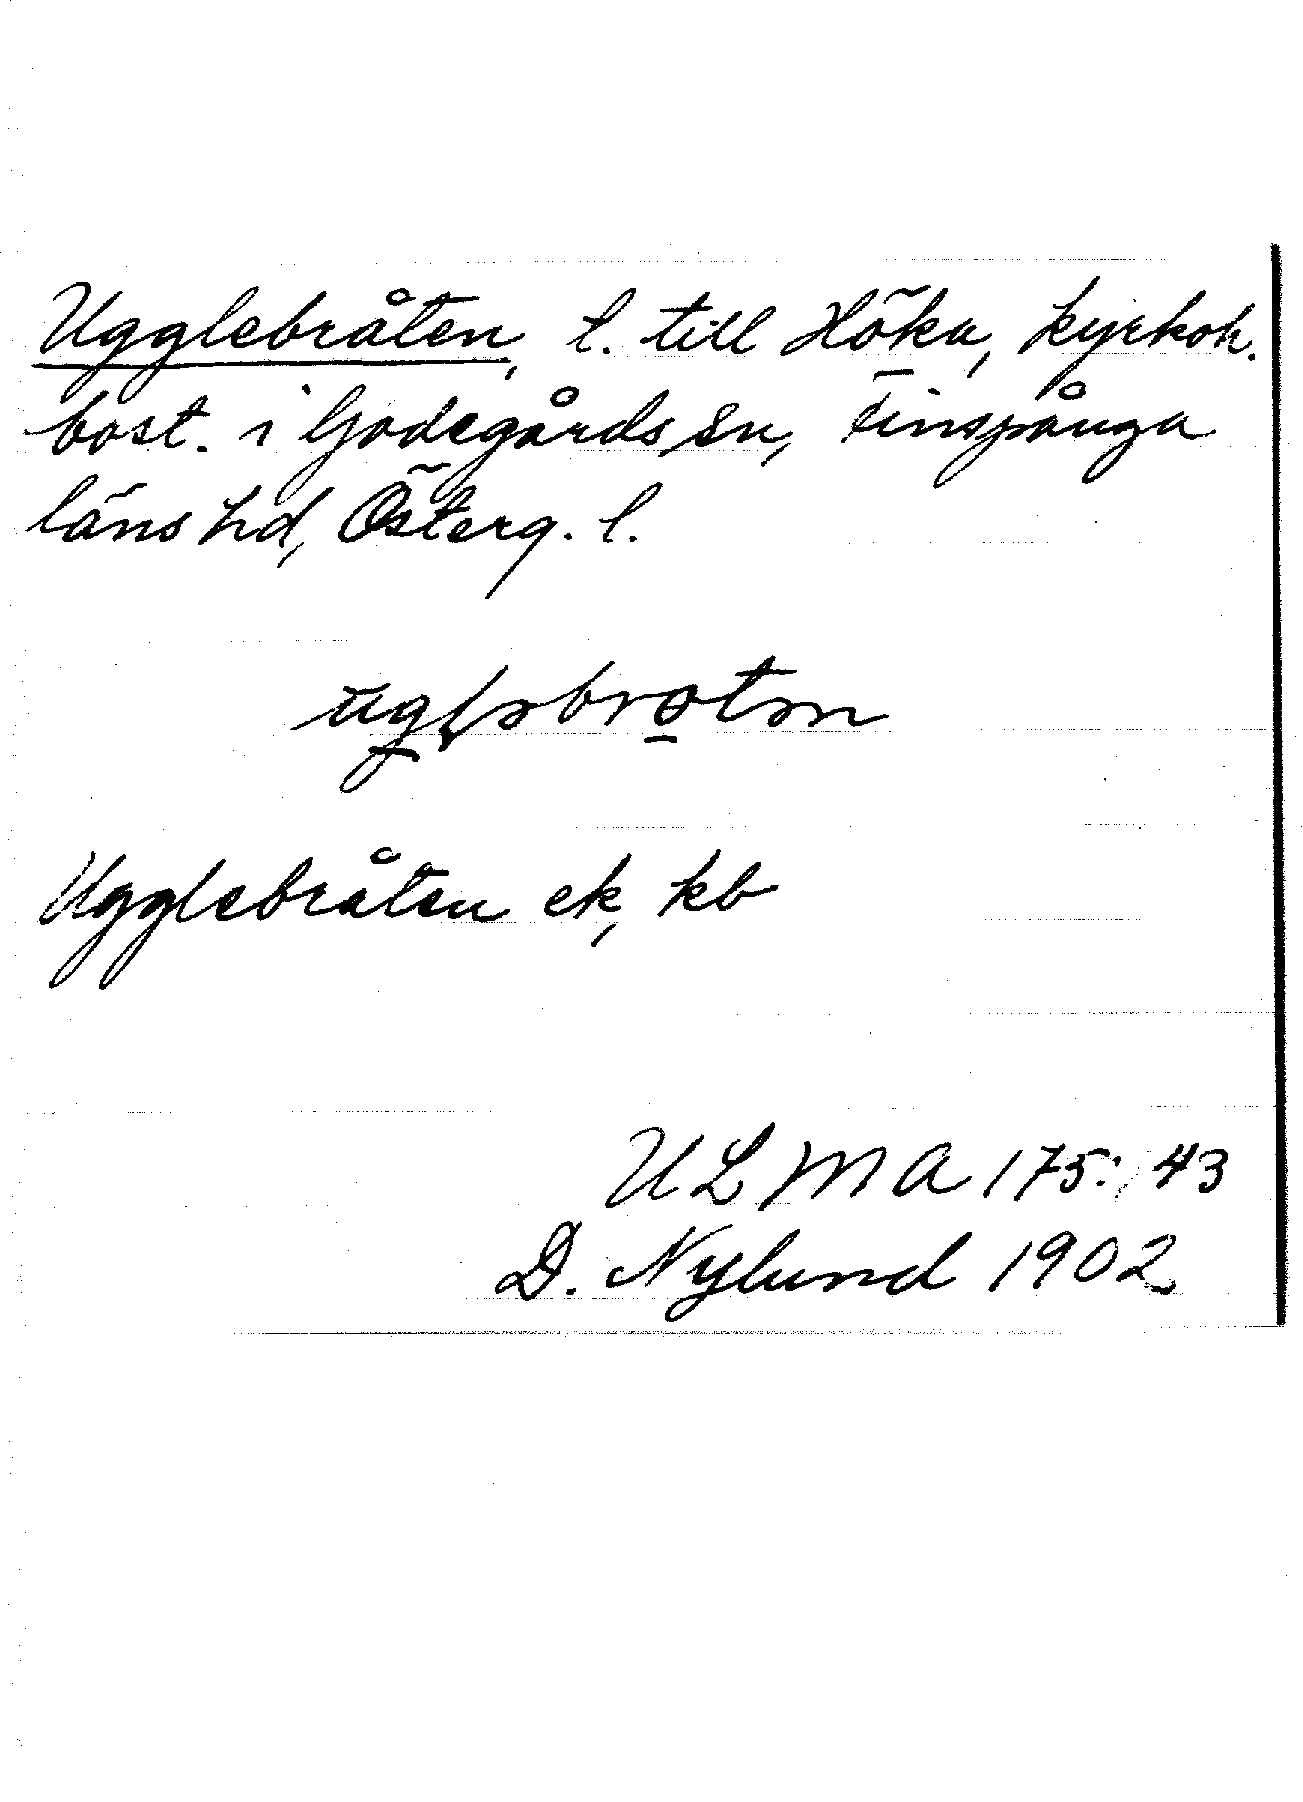 Ugglebråten, t. till Höka, kyrkoh.
bost. i Godegårds sn, Finspånga
läns hd, Österg. l.
Ugglebråten ek, kb
ULMA 175: 43
D. Nylund 1902